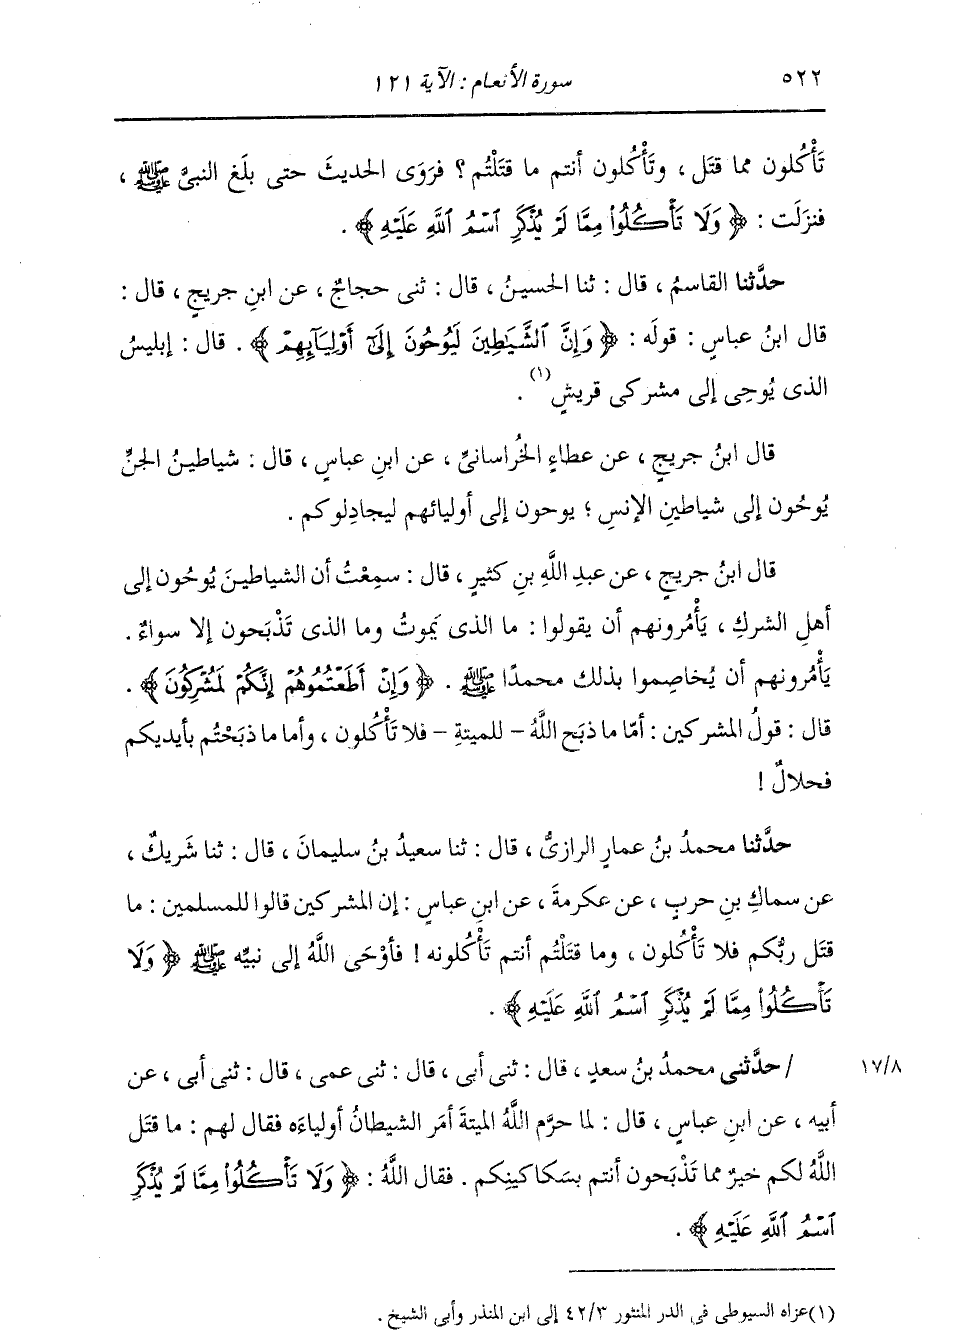 ٥٢٢ سورة الأنعام : الآية ١٢١
تَأْكُلون مما قتَل ، وتَأْكُلون أنتم ما قتَلْتُم ؟ فرَوَى الحديثَ حتى بلَغ النبىَّ ﷺ ،
فنزلَت : ﴿ وَلَا تَأْكُلُوا۟ مِمَّا لَمْ يُذْكَرِ ٱسْمُ ٱللَّهِ عَلَيْهِ ﴾ .
حدَّثنا القاسمُ ، قال : ثنا الحسينُ ، قال : ثنى حجاجٌ ، عن ابنِ جريجٍ ، قال :
قال ابنُ عباسٍ : قولَه : ﴿ وَإِنَّ ٱلشَّيَـٰطِينَ لَيُوحُونَ إِلَىٰٓ أَوْلِيَآئِهِمْ ﴾ . قال : إبليسُ
الذى يُوحِى إلى مشركى قريشٍ(١) .
قال ابنُ جريجٍ ، عن عطاءٍ الخُراسانىِّ ، عن ابنِ عباسٍ ، قال : شياطينُ الجنِّ
يُوحُون إلى شياطينِ الإنسِ ؛ يوحون إلى أوليائهم ليجادِلوكم .
قال ابنُ جريجٍ ، عن عبدِ اللَّهِ بنِ كثيرٍ ، قال : سمِعْتُ أن الشياطينَ يُوحُون إلى
أهلِ الشركِ ، يَأْمُرونهم أن يقولوا : ما الذى يَموتُ وما الذى تَذْبَحون إلا سواءٌ .
يَأْمُرونهم أن يُخاصِموا بذلك محمدًا ﷺ . ﴿ وَإِنْ أَطَعْتُمُوهُمْ إِنَّكُمْ لَمُشْرِكُونَ ﴾ .
قال : قولُ المشركين : أمّا ما ذبَح اللَّهُ – للميتةِ – فلا تَأْكُلون ، وأما ما ذبَحْتُم بأيديكم
فحلالٌ !
حدَّثنا محمدُ بنُ عمارٍ الرازىُّ ، قال : ثنا سعيدُ بنُ سليمانَ ، قال : ثنا شَريكٌ ،
عن سماكِ بنِ حربٍ ، عن عكرمةَ ، عن ابنِ عباسٍ : إن المشركين قالوا للمسلمين : ما
قتَل ربُّكم فلا تَأْكُلون ، وما قتَلْتُم أنتم تَأْكُلونه ! فأوْحَى اللَّهُ إلى نبيِّه ﷺ ﴿ وَلَا
تَأْكُلُوا۟ مِمَّا لَمْ يُذْكَرِ ٱسْمُ ٱللَّهِ عَلَيْهِ ﴾ .
١٧/٨ / حدَّثنى محمدُ بنُ سعدٍ ، قال : ثنى أبى ، قال : ثنى عمى ، قال : ثنى أبى ، عن
أبيه ، عن ابنِ عباسٍ ، قال : لما حرَّم اللَّهُ الميتةَ أمَر الشيطانُ أولياءَه فقال لهم : ما قتَل
اللَّهُ لكم خيرٌ مما تَذْبَحون أنتم بسَكاكينِكم . فقال اللَّهُ : ﴿ وَلَا تَأْكُلُوا۟ مِمَّا لَمْ يُذْكَرِ
ٱسْمُ ٱللَّهِ عَلَيْهِ ﴾ .
(١) عزاه السيوطى فى الدر المنثور ٤٢/٣ إلى ابن المنذر وأبى الشيخ .